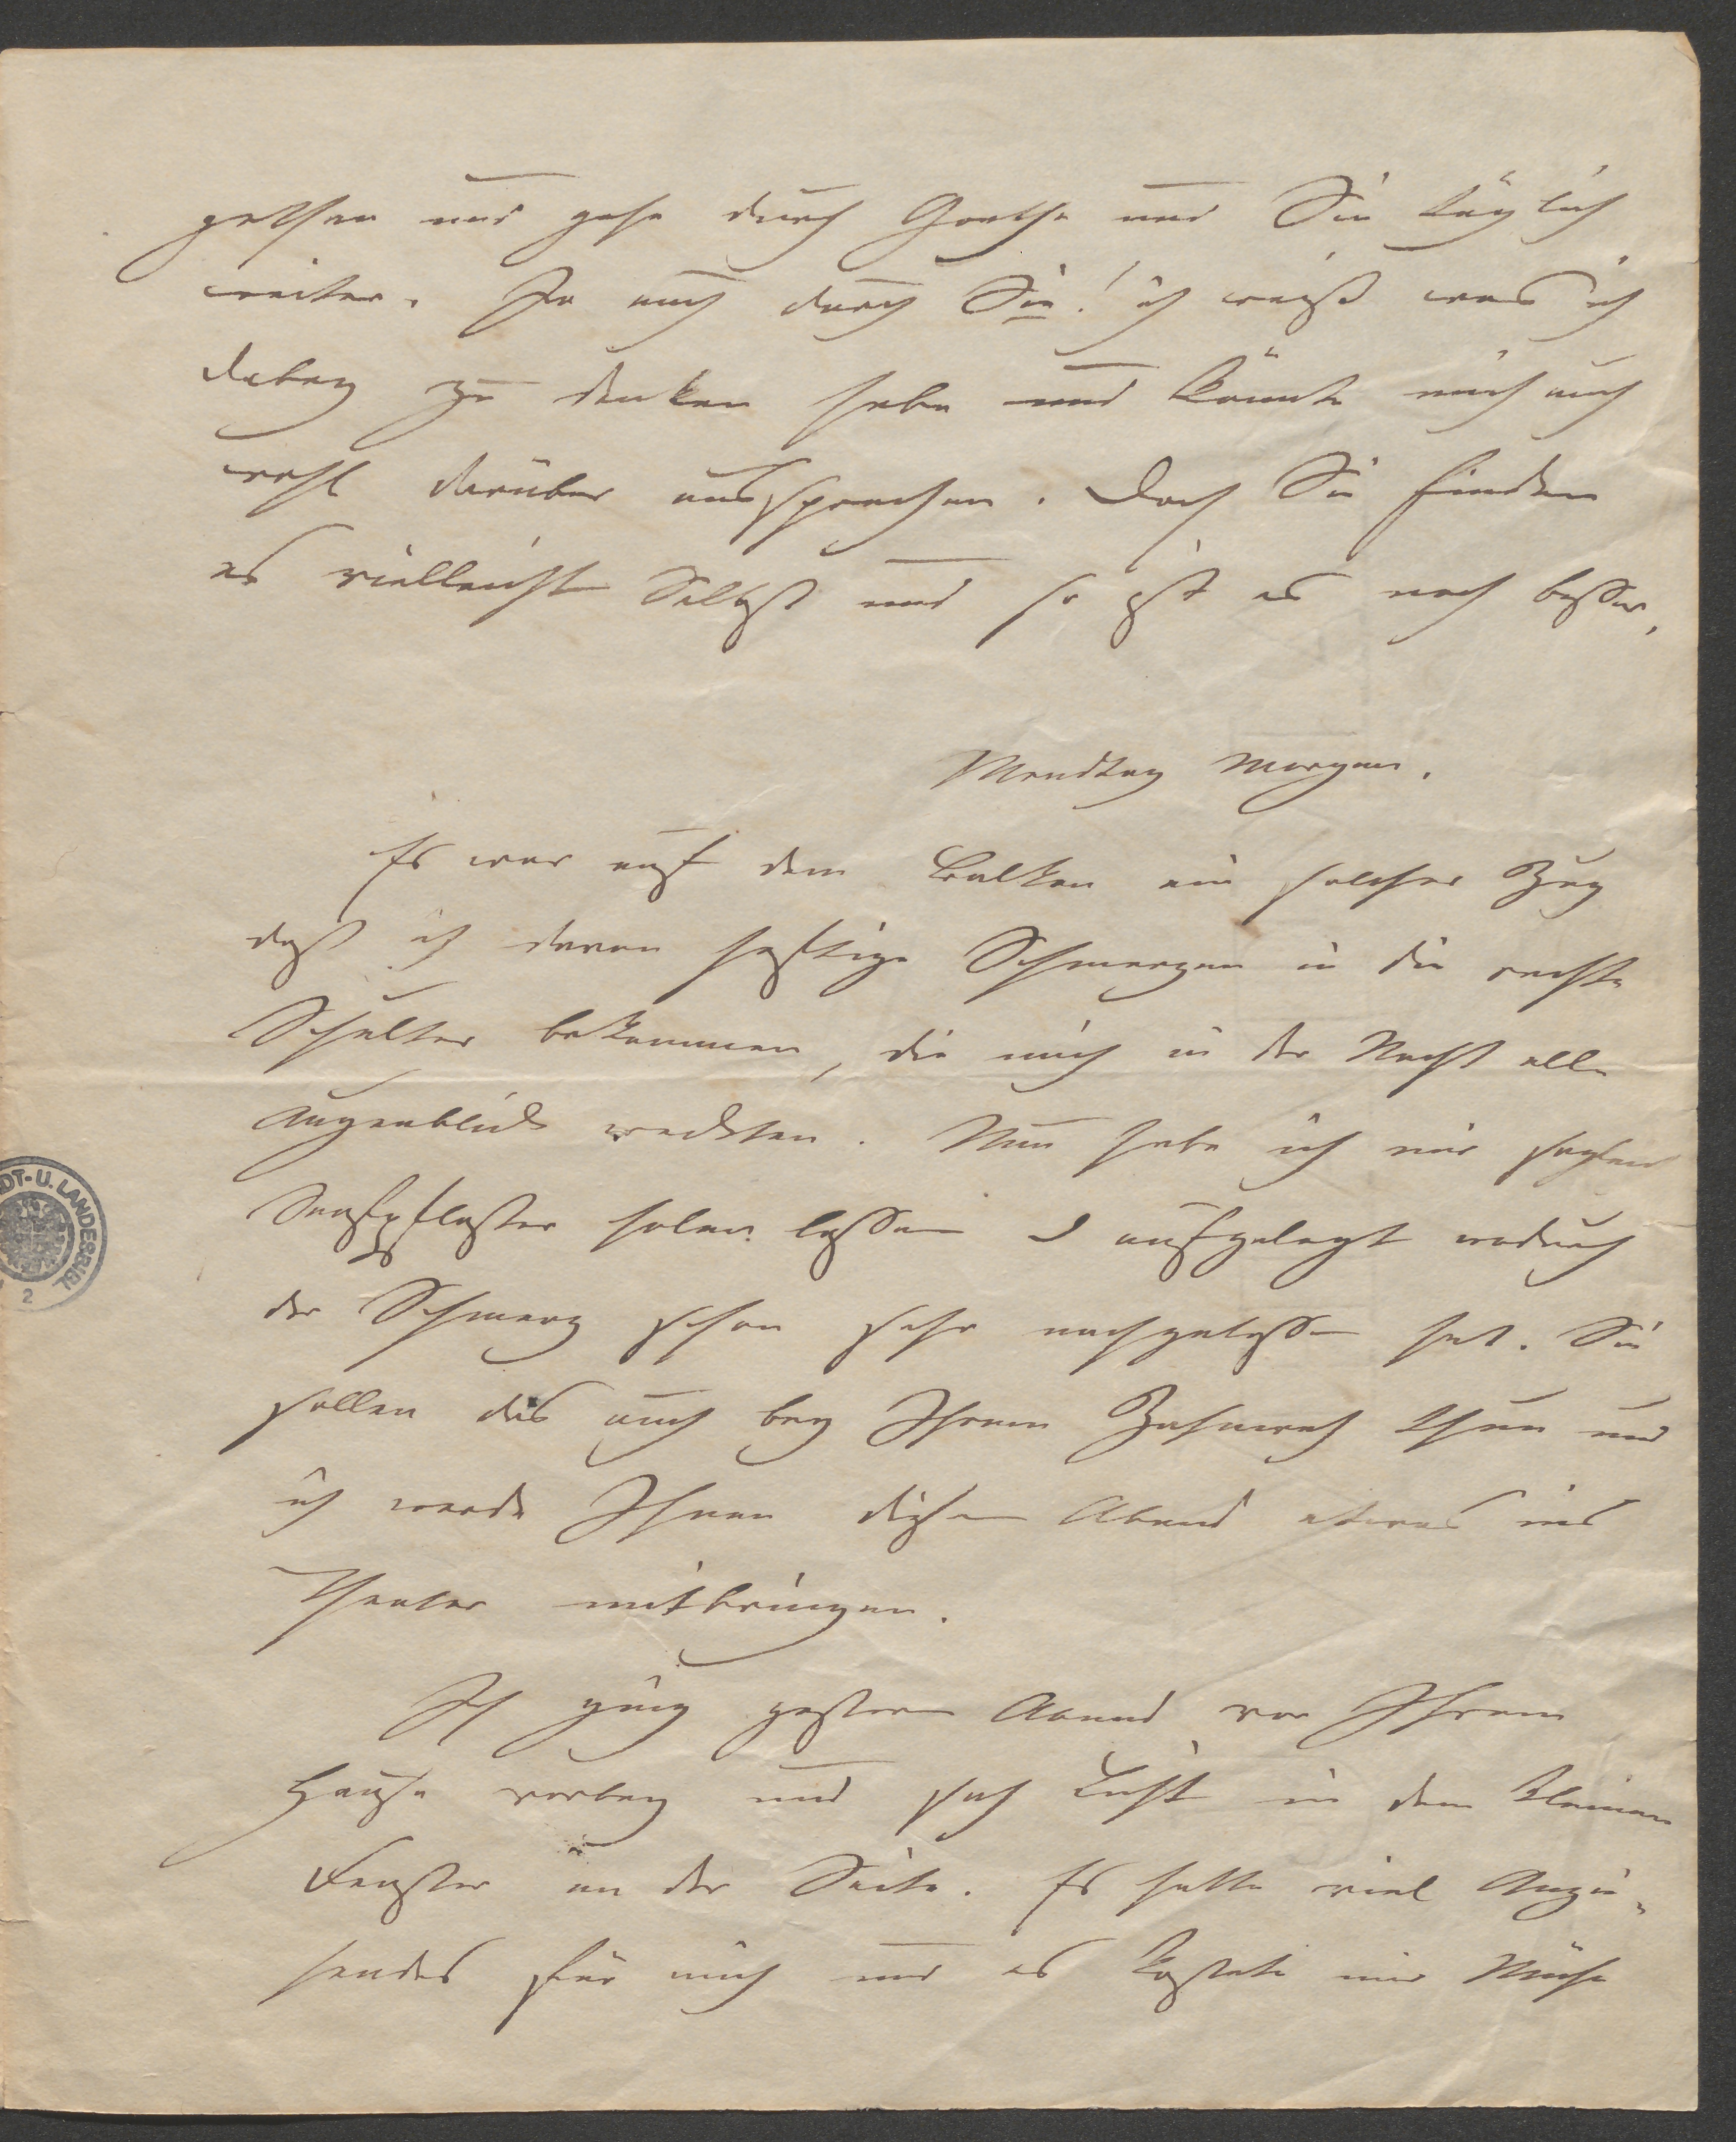 gethan und gehe durch Goethe und Sie täglich
weiter. Ja auch durch Sie! ich weiß was ich
dabey zu denken habe und könnte mich auch
wohl darüber aussprechen. Doch Sie finden
es vielleicht Selbst und so ist es noch besser.
Mondtag Morgen.
Es war auf dem Balkon ein solcher Zug
daß ich davon heftige Schmerzen in die rechte
Schulter bekommen, die mich in der Nacht alle
Augenblick weckten. Nun habe ich mir
Senfpflaster holen lassen u aufgelegt wodurch
der Schmerz schon sehr nachgelassen hat. Sie
sollen das auch bey Ihrem Zahnweh thun und
ich werde Ihnen diesen Abend etwas ins
Theater mitbringen.
Ich ging gestern Abend vor Ihrem
Hause vorbey und sah Licht in dem kleinen
Fenster an der Seite. Es hatte viel Anzie-
hendes für mich und es kostete mir Mühe
DT- U. LANDESBIBL
2